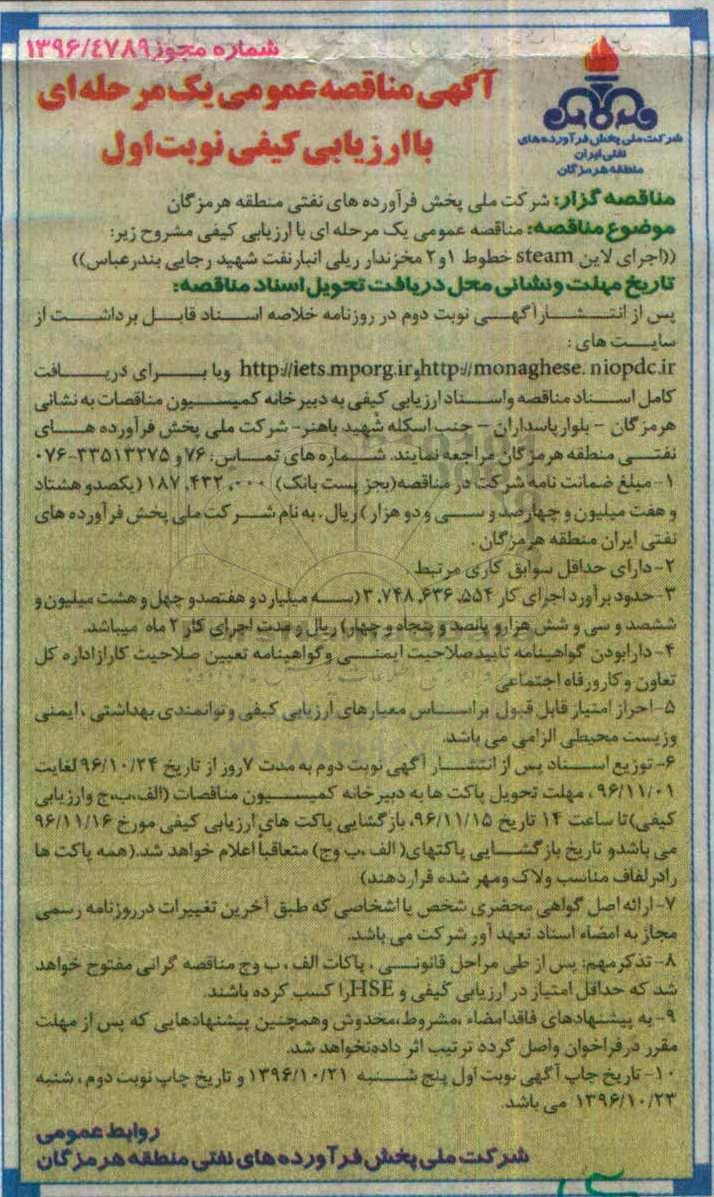 شماره مجوز ۱۳۹۶/٤٧٨٩
آگهی مناقصه عمومی یک مرحله ای
با ارزیابی کیفی نوبت اول
شرکت ملی پخش فرآورده های
نفتی ایران
منطقه هرمزگان
مناقصه گزار: شرکت ملی پخش فرآورده های نفتی منطقه هرمزگان
موضوع مناقصه: مناقصه عمومی یک مرحله ای با ارزیابی کیفی مشروح زیر:
((اجرای لاین steam خطوط ۱و۲ مخزندار ریلی انبارنفت شهید رجایی بندرعباس))
تاریخ مهلت ونشانی محل دریافت تحویل اسناد مناقصه:
پس از انتشار آگهی نوبت دوم در روزنامه خلاصه اسناد قابل برداشت از
سایت های :
http://monaghese. niopdc.irوhttp://iets.mporg.ir ویا برای دریافت
کامل اسناد مناقصه واسناد ارزیابی کیفی به دبیرخانه کمیسیون مناقصات به نشانی
هرمزگان – بلوار پاسداران – جنب اسکله شهید باهنر- شرکت ملی پخش فرآورده های
نفتی منطقه هرمزگان مراجعه نمایند. شماره های تماس: ۷۶ و ۳۳۵۱۳۲۷۵-۰۷۶
۱- مبلغ ضمانت نامه شرکت در مناقصه(بجز پست بانک) ۱۸۷,۴۳۲,۰۰۰ (یکصدو هشتاد
و هفت میلیون و چهارصد و سی و دو هزار ) ریال . به نام شرکت ملی پخش فرآورده های
نفتی ایران منطقه هرمزگان .
۲- دارای حداقل سوابق کاری مرتبط .
۳- حدود برآورد اجرای کار ۳,۷۴۸,۶۳۶,۵۵۴ (سه میلیارد و هفتصدو چهل و هشت میلیون و
ششصد و سی و شش هزار و پانصد و پنجاه و چهار) ریال و مدت اجرای کار ۲ ماه میباشد.
۴- دارابودن گواهینامه تاییدصلاحیت ایمنی و گواهینامه تعیین صلاحیت کار ازاداره کل
تعاون و کارورفاه اجتماعی
۵- احراز امتیاز قابل قبول براساس معیارهای ارزیابی کیفی وتوانمندی بهداشتی ، ایمنی
وزیست محیطی الزامی می باشد.
۶- توزیع اسناد پس از انتشار آگهی نوبت دوم به مدت ۷ روز از تاریخ ۹۶/۱۰/۲۴ لغایت
۹۶/۱۱/۰۱ ، مهلت تحویل پاکت ها به دبیرخانه کمیسیون مناقصات (الف،ب،ج وارزیابی
کیفی) تا ساعت ۱۴ تاریخ ۹۶/۱۱/۱۵، بازگشایی پاکت های ارزیابی کیفی مورخ ۹۶/۱۱/۱۶
می باشدو تاریخ بازگشایی پاکتهای( الف ،ب وج) متعاقباً اعلام خواهد شد.(همه پاکت ها
رادرلفاف مناسب ولاک ومهر شده قراردهند)
۷- ارائه اصل گواهی محضری شخص یا اشخاصی که طبق آخرین تغییرات درروزنامه رسمی
مجاز به امضاء اسناد تعهد آور شرکت می باشد.
۸- تذکرمهم: پس از طی مراحل قانونی ، پاکات الف ، ب وج مناقصه گرانی مفتوح خواهد
شد که حداقل امتیاز در ارزیابی کیفی و HSE را کسب کرده باشند.
۹- به پیشنهادهای فاقدامضاء ،مشروط،مخدوش وهمچنین پیشنهادهایی که پس از مهلت
مقرر درفراخوان واصل گردد ترتیب اثر داده‌نخواهد شد.
۱۰- تاریخ چاپ آگهی نوبت اول پنج شنبه ۱۳۹۶/۱۰/۲۱ و تاریخ چاپ نوبت دوم ، شنبه
۱۳۹۶/۱۰/۲۳ می باشد.
روابط عمومی
شرکت ملی پخش فرآورده های نفتی منطقه هرمزگان